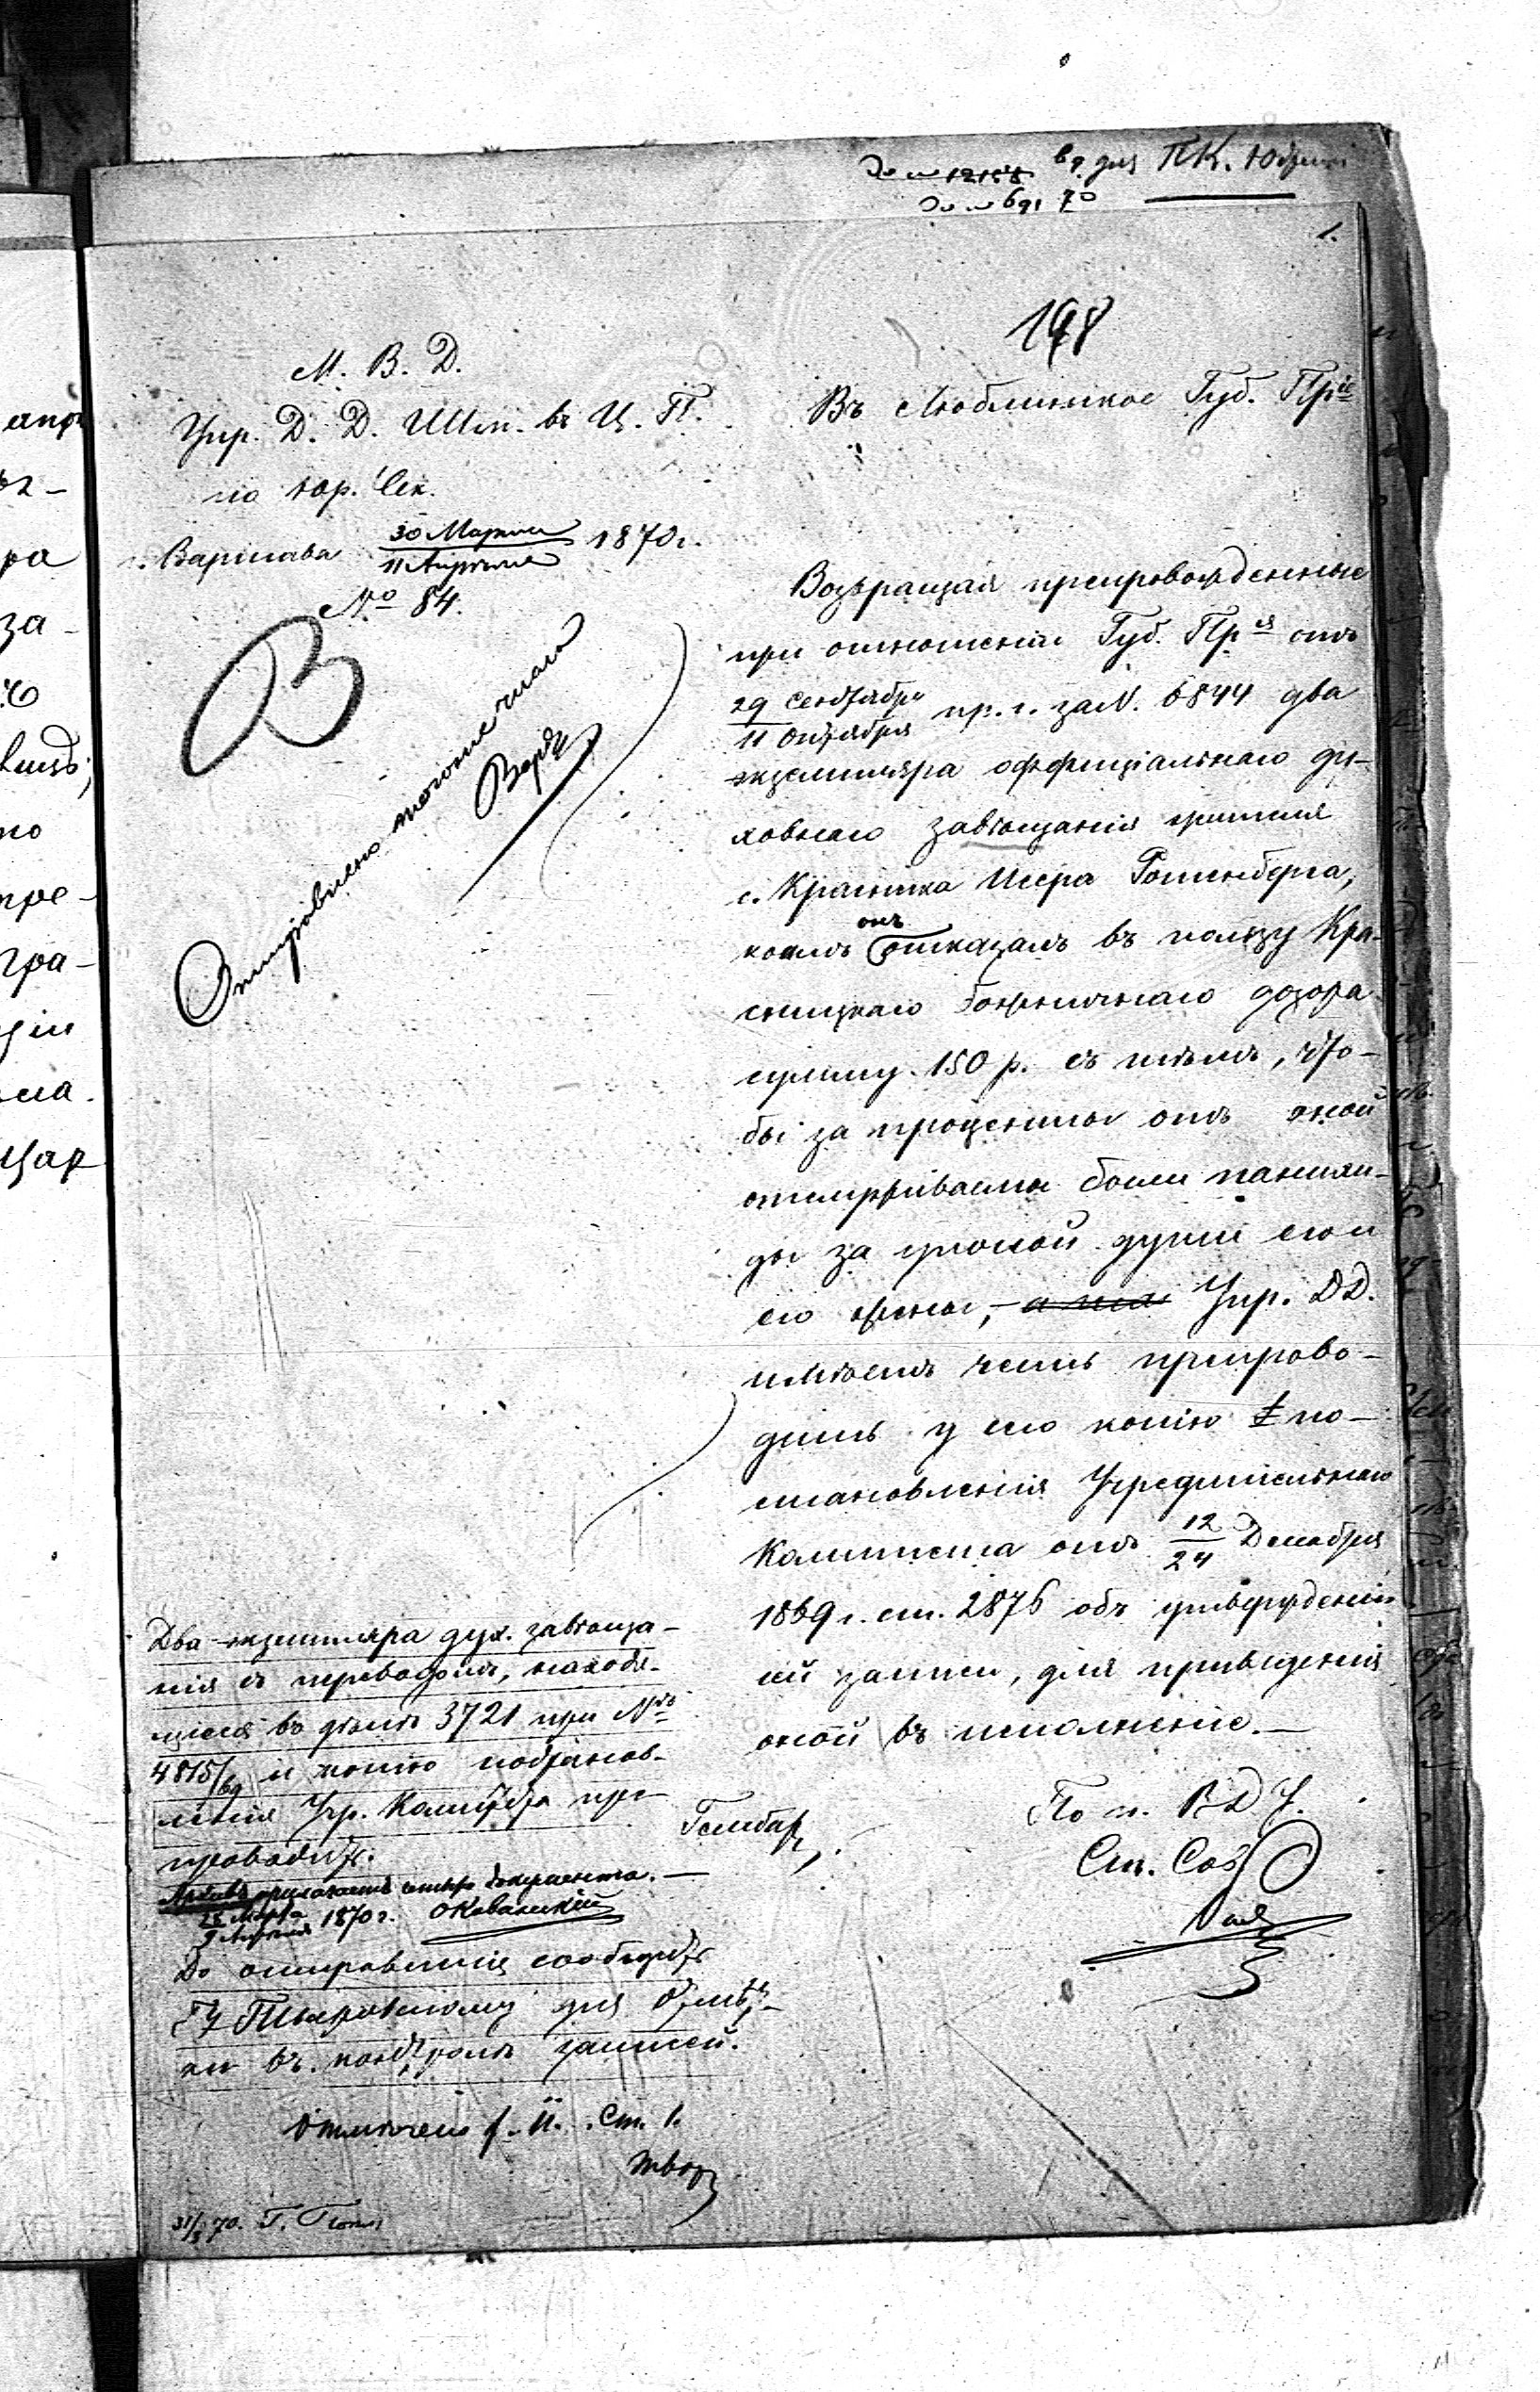 691 70
1.
198
М. В. Д.
Упр. Д. Д. Ин. въ Ц. П.
по юр. Сек.
г. Варшава 30 Марта / 11 Апрѣля 1870 г.
№ 84.
Отправлено
Въ Люблинское Губ. Пр.іе
Возвращая препровожденные
при отношеніи Губ. Пр.ія отъ
29 Сентября / 11 Октября пр. г. за N. 6844 два
экземпляра оффиціальнаго ду-
ховнаго завѣщанія жителя
г. Красника Штера Ротенберга,
коимъ онъ отказалъ въ пользу Кра-
сницкаго божничнаго дозора
сумму 150 р. съ тѣмъ, что-
бы за проценты отъ оной
отправляемы были панихи-
ды за упокой души его и
его жены, Упр. Д.Д.
имѣетъ честь препрово-
дить у сего копію по-
становленія Учредительнаго
Комитета отъ 12/24 Декабря
1869 г. ст. 2876 объ утвержденіи
сей записи, для приведенія
оной въ исполненіе.—
По п. В Д У.
Ст. Сов.
Два экземпляра дух. завѣща-
нія съ переводомъ, находя-
щіеся въ дѣлѣ 3721 при №
4815/69 и копію постанов-
ленія Учр. Комитета пре-
проводить.
приложитъ четыре документа.—
28 Марта / 9 Апрѣля 1870 г.
До отправленія сообщить
для отмѣт-
ки въ контролѣ записей.
Отмѣчено ст. 1.
31/3 70. Г.